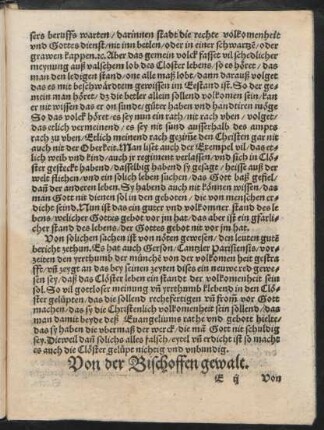 sers beruffs warten/darinnen stadt die rechte volkomenheit
vnd Gottes dienst/nit inn betlen/oder in einer schwartzē/oder
grawen kappen.ꝛc. Aber das gemein volck fasset vil schedlicher
meynung auß valschem lob des Closter lebens/so es höret/das
man den ledigen stand/one alle maß lobt/dann darauß volget
das es mit beschwärdtem gewissen im Eestand ist. So der ge-
mein man höret/dz die betler allein sollend volkomen sein/kan
er nit wissen das er on sünde/güter haben vnd handtiren möge
So das volck höret/es sey nun ein rath/nit rach vben/volget/
das etlich vermeinend/es sey nit sünd ausserhalb des ampts
rach zu vben/Etlich meinend rach gezim̄e den Christen gar nit
auch nit der Oberkeit. Man liset auch der Exempel vil/das et-
lich weib vnd kind/auch jr regiment verlassen/vnd sich in Clö-
ster gesteckt habend/dasselbig habend sy gesagt/heisse auß der
welt fliehen/vnd ein solich leben suchen/das Gott baß gefiel/
dann̄ der anderen leben. Sy habend auch nit können wissen/das
man̄ Gott nit dienen sol in den gebotten/die von menschen er-
dicht sind. Nun ist das ein guter vnd volkomner stand des le-
bens/welicher Gottes gebot vor jm hat. das aber ist ein gfarli-
cher stand des lebens/der Gottes gebot nit vor jm hat.
Von solichen sachen ist von nöten gewesen/den leuten gutē
bericht zethun/Es hat auch Gerson/Cantzler Parisiensis/vor
zeiten den yrrthumb der münchē von der volkomenheit gestra
fft/vn̄ zeygt an das bey seinen zeyten diß es ein neuwe red gewe-
sen sey/daß das Clöster leben ein stande der volkomenheit sein
sol. So vil gottloser meinung vn̄ yrrthumb klebend in den Clö
ster gelüpten/das die sollend rechtfertigen vn̄ from̄ vor Gott
machen/das sy die Christenlich volkomenheit sein sollend/das
man damit beyde deß Euangeliums rathe vnd gebott hielte/
das sy haben die vbermaß der werck/die mā Gott nit schuldig
sey. Dieweil dañ solichs alles falsch/eytel vn̄ erdicht ist so macht
es auch die Clöster gelüpt nichtig vnd vnbundig.
Von der Bischoffen gewalt.
E ij Von